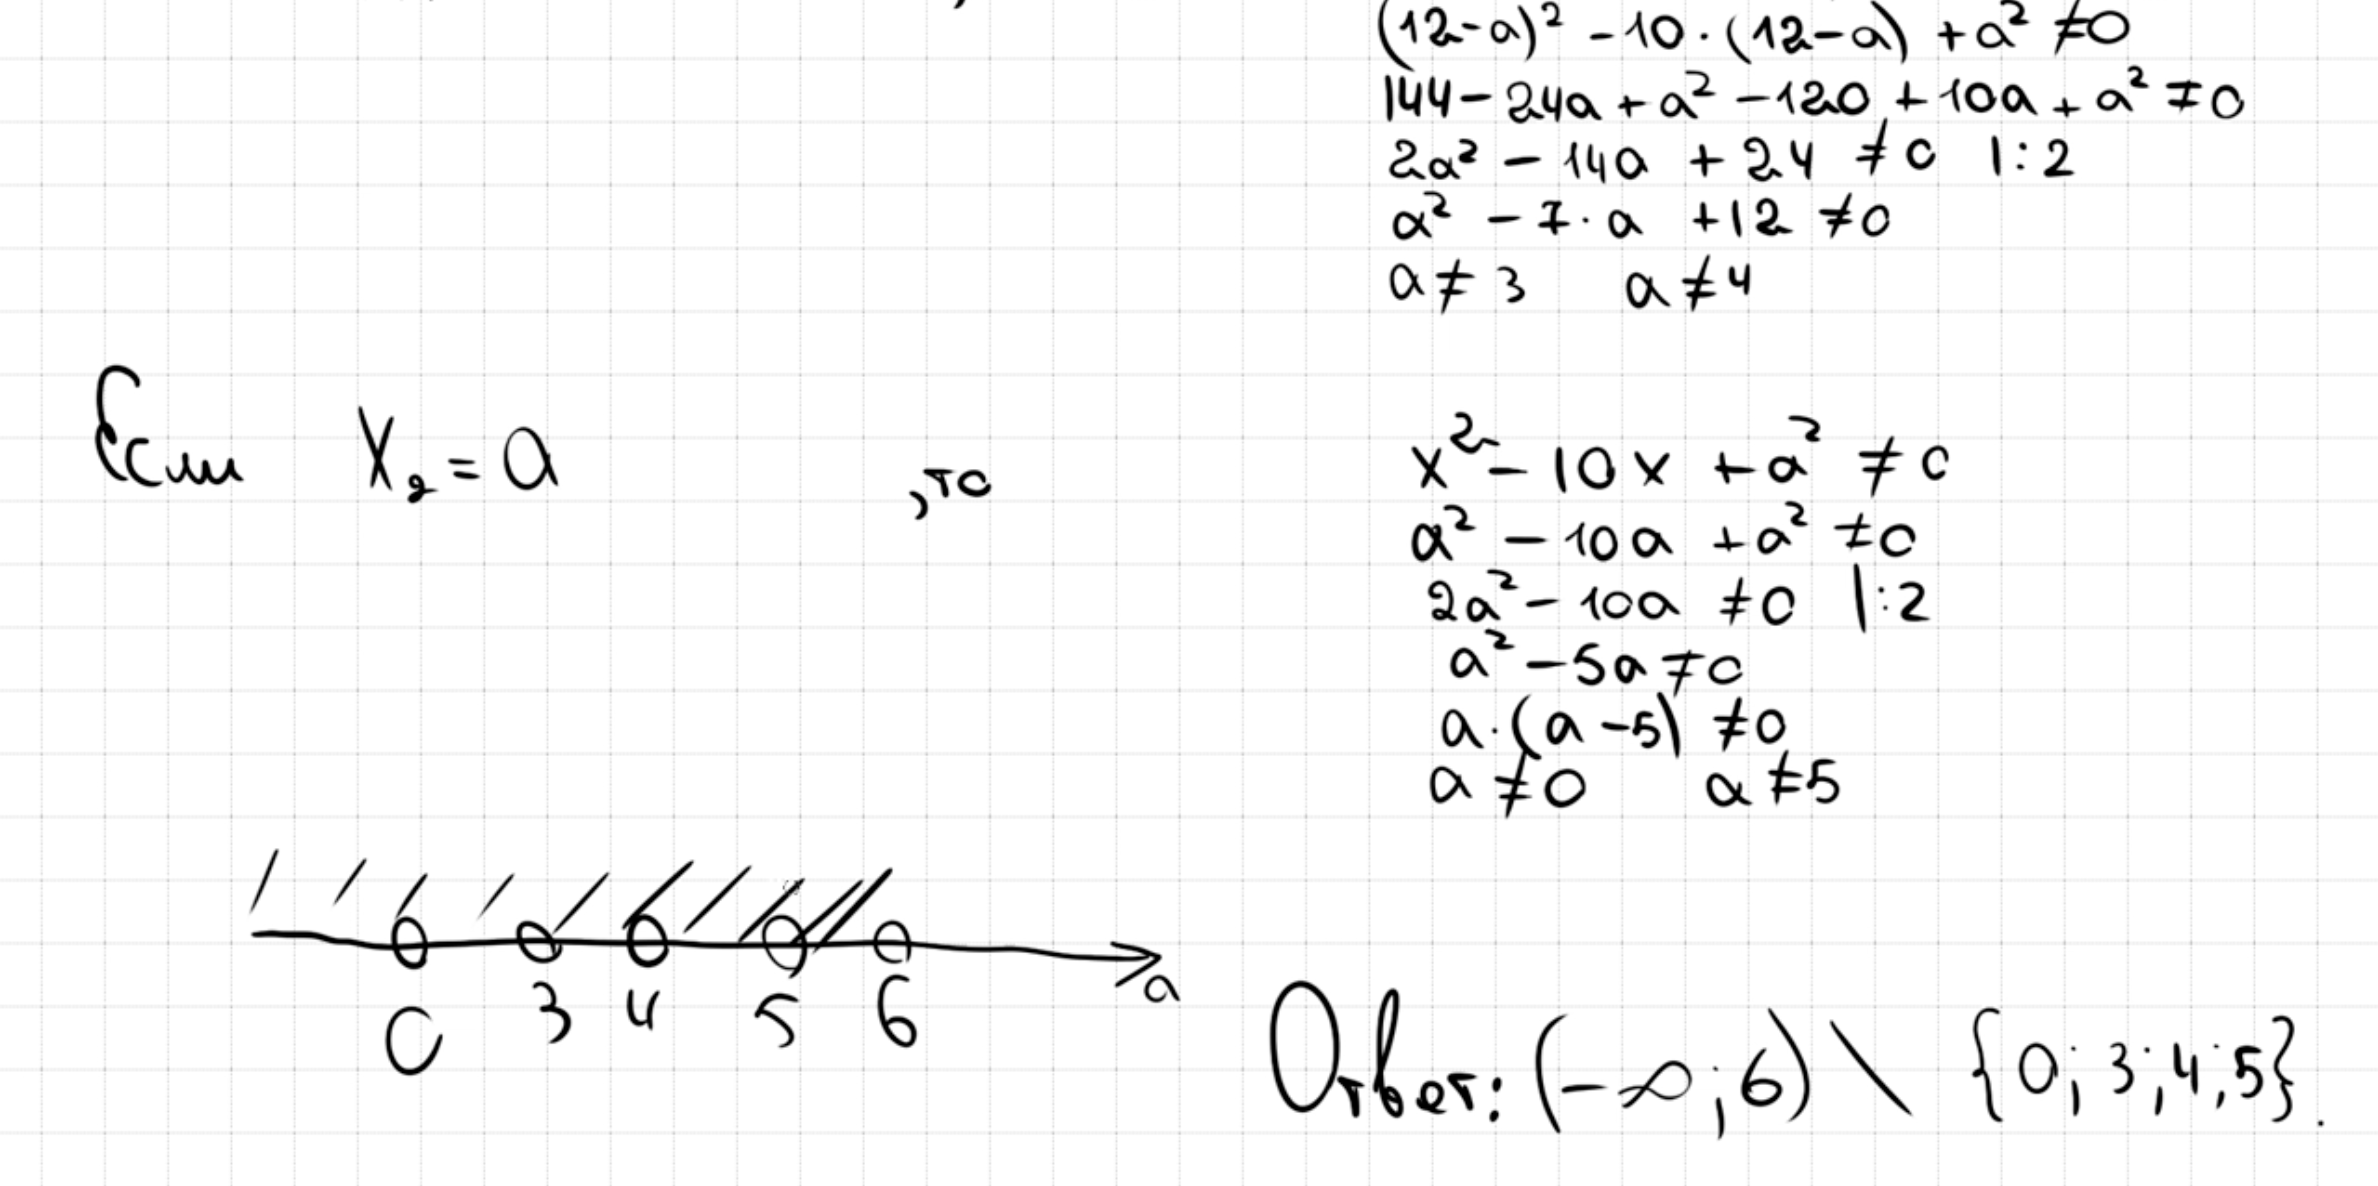 (12-a)² - 10·(12-a) + a² ≠0
144 - 24a + a² - 120 + 10a + a² ≠0
2a² - 14a + 24 ≠0 |:2
a² - 7·a + 12 ≠0
a ≠ 3 a ≠ 4
Если x₂ = a ,то
x² - 10x + a² ≠ 0
a² - 10a + a² ≠0
2a² - 10a ≠0 |:2
a² - 5a ≠0
a·(a-5) ≠0
a ≠0 a ≠5
0 3 4 5 6 a
Ответ: (-∞;6) \ {0;3;4;5}.